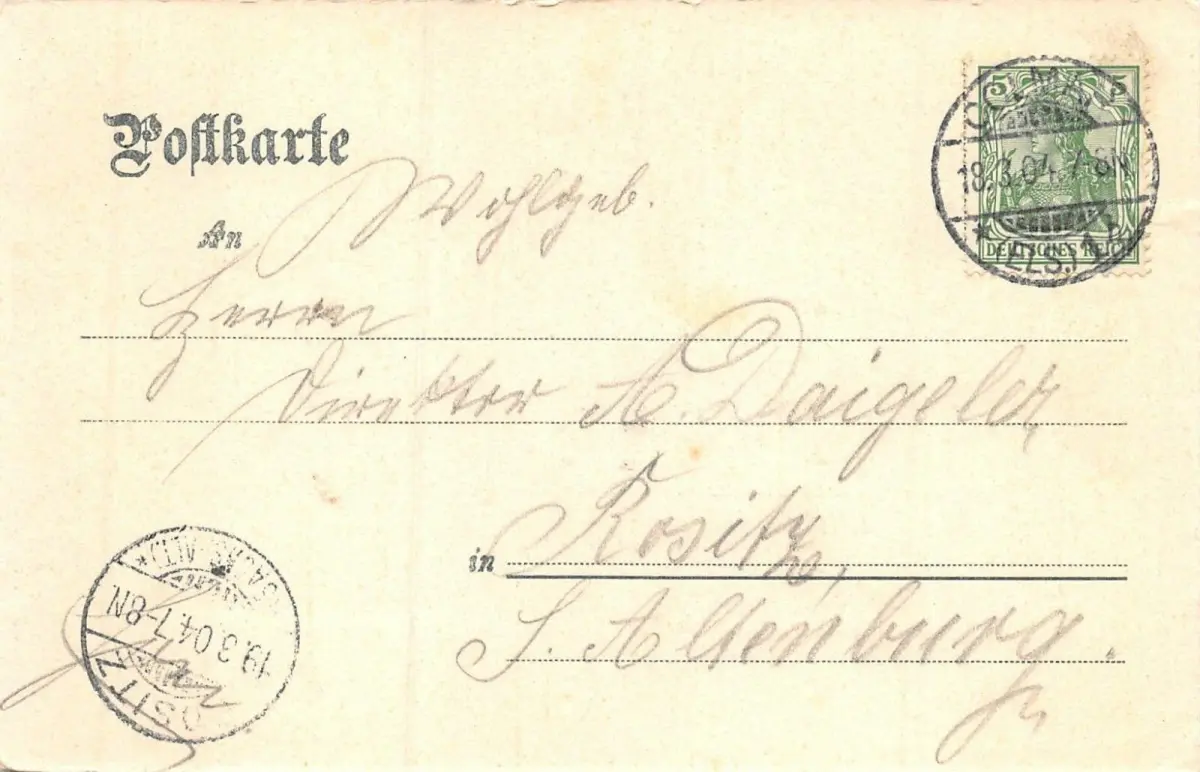 Postkarte
5 5
COLMAR
18.3.04.7-8N
* (ELS.) 1
DEUTSCHES REICH
Wohlgeb.
An
Herrn
Direktor A. Daigeler,
in Rositz,
S. Altenburg.
19.3.04.7-8N